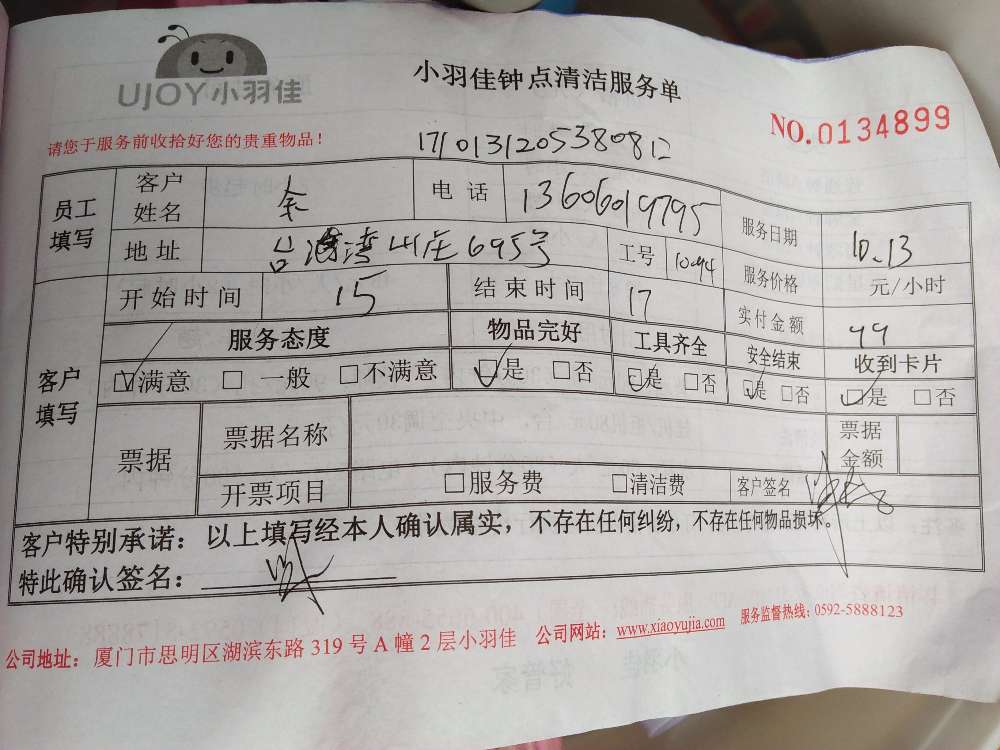 UJOY小羽佳
小羽佳钟点清洁服务单
NO.0134899
请您于服务前收拾好您的贵重物品！
1710131205380812
员工填写 客户姓名 余 电话 13606019795 服务日期 10.13
地址 台湾山庄695号 工号 1094 服务价格 元/小时
客户填写 开始时间 15 结束时间 17 实付金额 99
服务态度 物品完好 工具齐全 安全结束 收到卡片
☑满意 □一般 □不满意 ☑是 □否 ☑是 □否 ☑是 □否 ☑是 □否
票据 票据名称 票据金额
开票项目 □服务费 □清洁费 客户签名
客户特别承诺：以上填写经本人确认属实，不存在任何纠纷，不存在任何物品损坏。
特此确认签名：
公司地址：厦门市思明区湖滨东路319号A幢2层小羽佳 公司网站：www.xiaoyujia.com 服务监督热线：0592-5888123